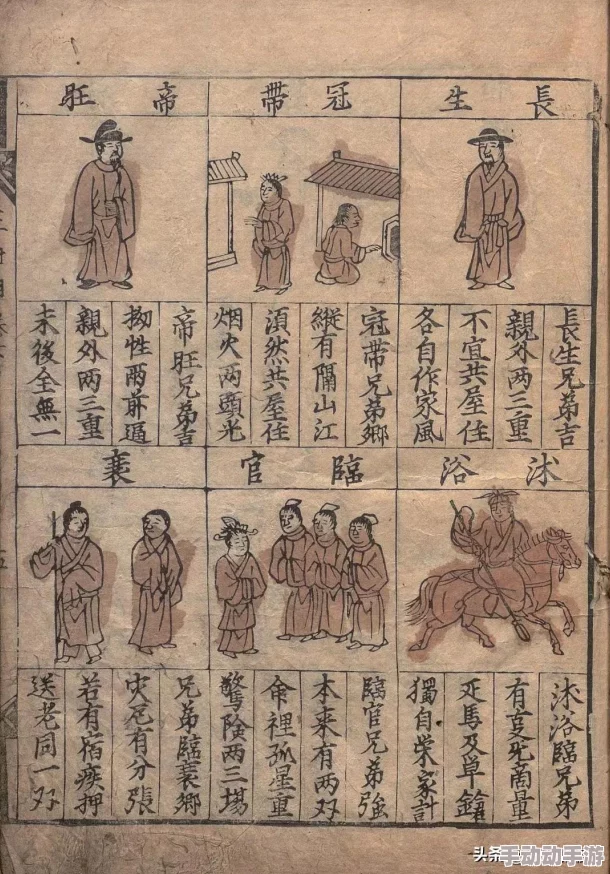 長生
長生兄弟吉
親外兩三重
不宜共屋住
各自作家風
冠帶
冠帶兄弟鄉
縱有隔山江
須然共屋住
烟火兩頭光
帝旺
帝旺兄弟吉
拗性兩前逼
親外兩三重
末後全無一
沐浴
沐浴臨兄弟
有
商量
馬及單
獨自榮家計
臨官
臨官兄弟強
本來有兩双
命裡孤星重
驚險兩三場
衰
兄弟臨衰鄉
灾厄有分張
若有宿疾押
送老同一双
五
头条
手动动手游